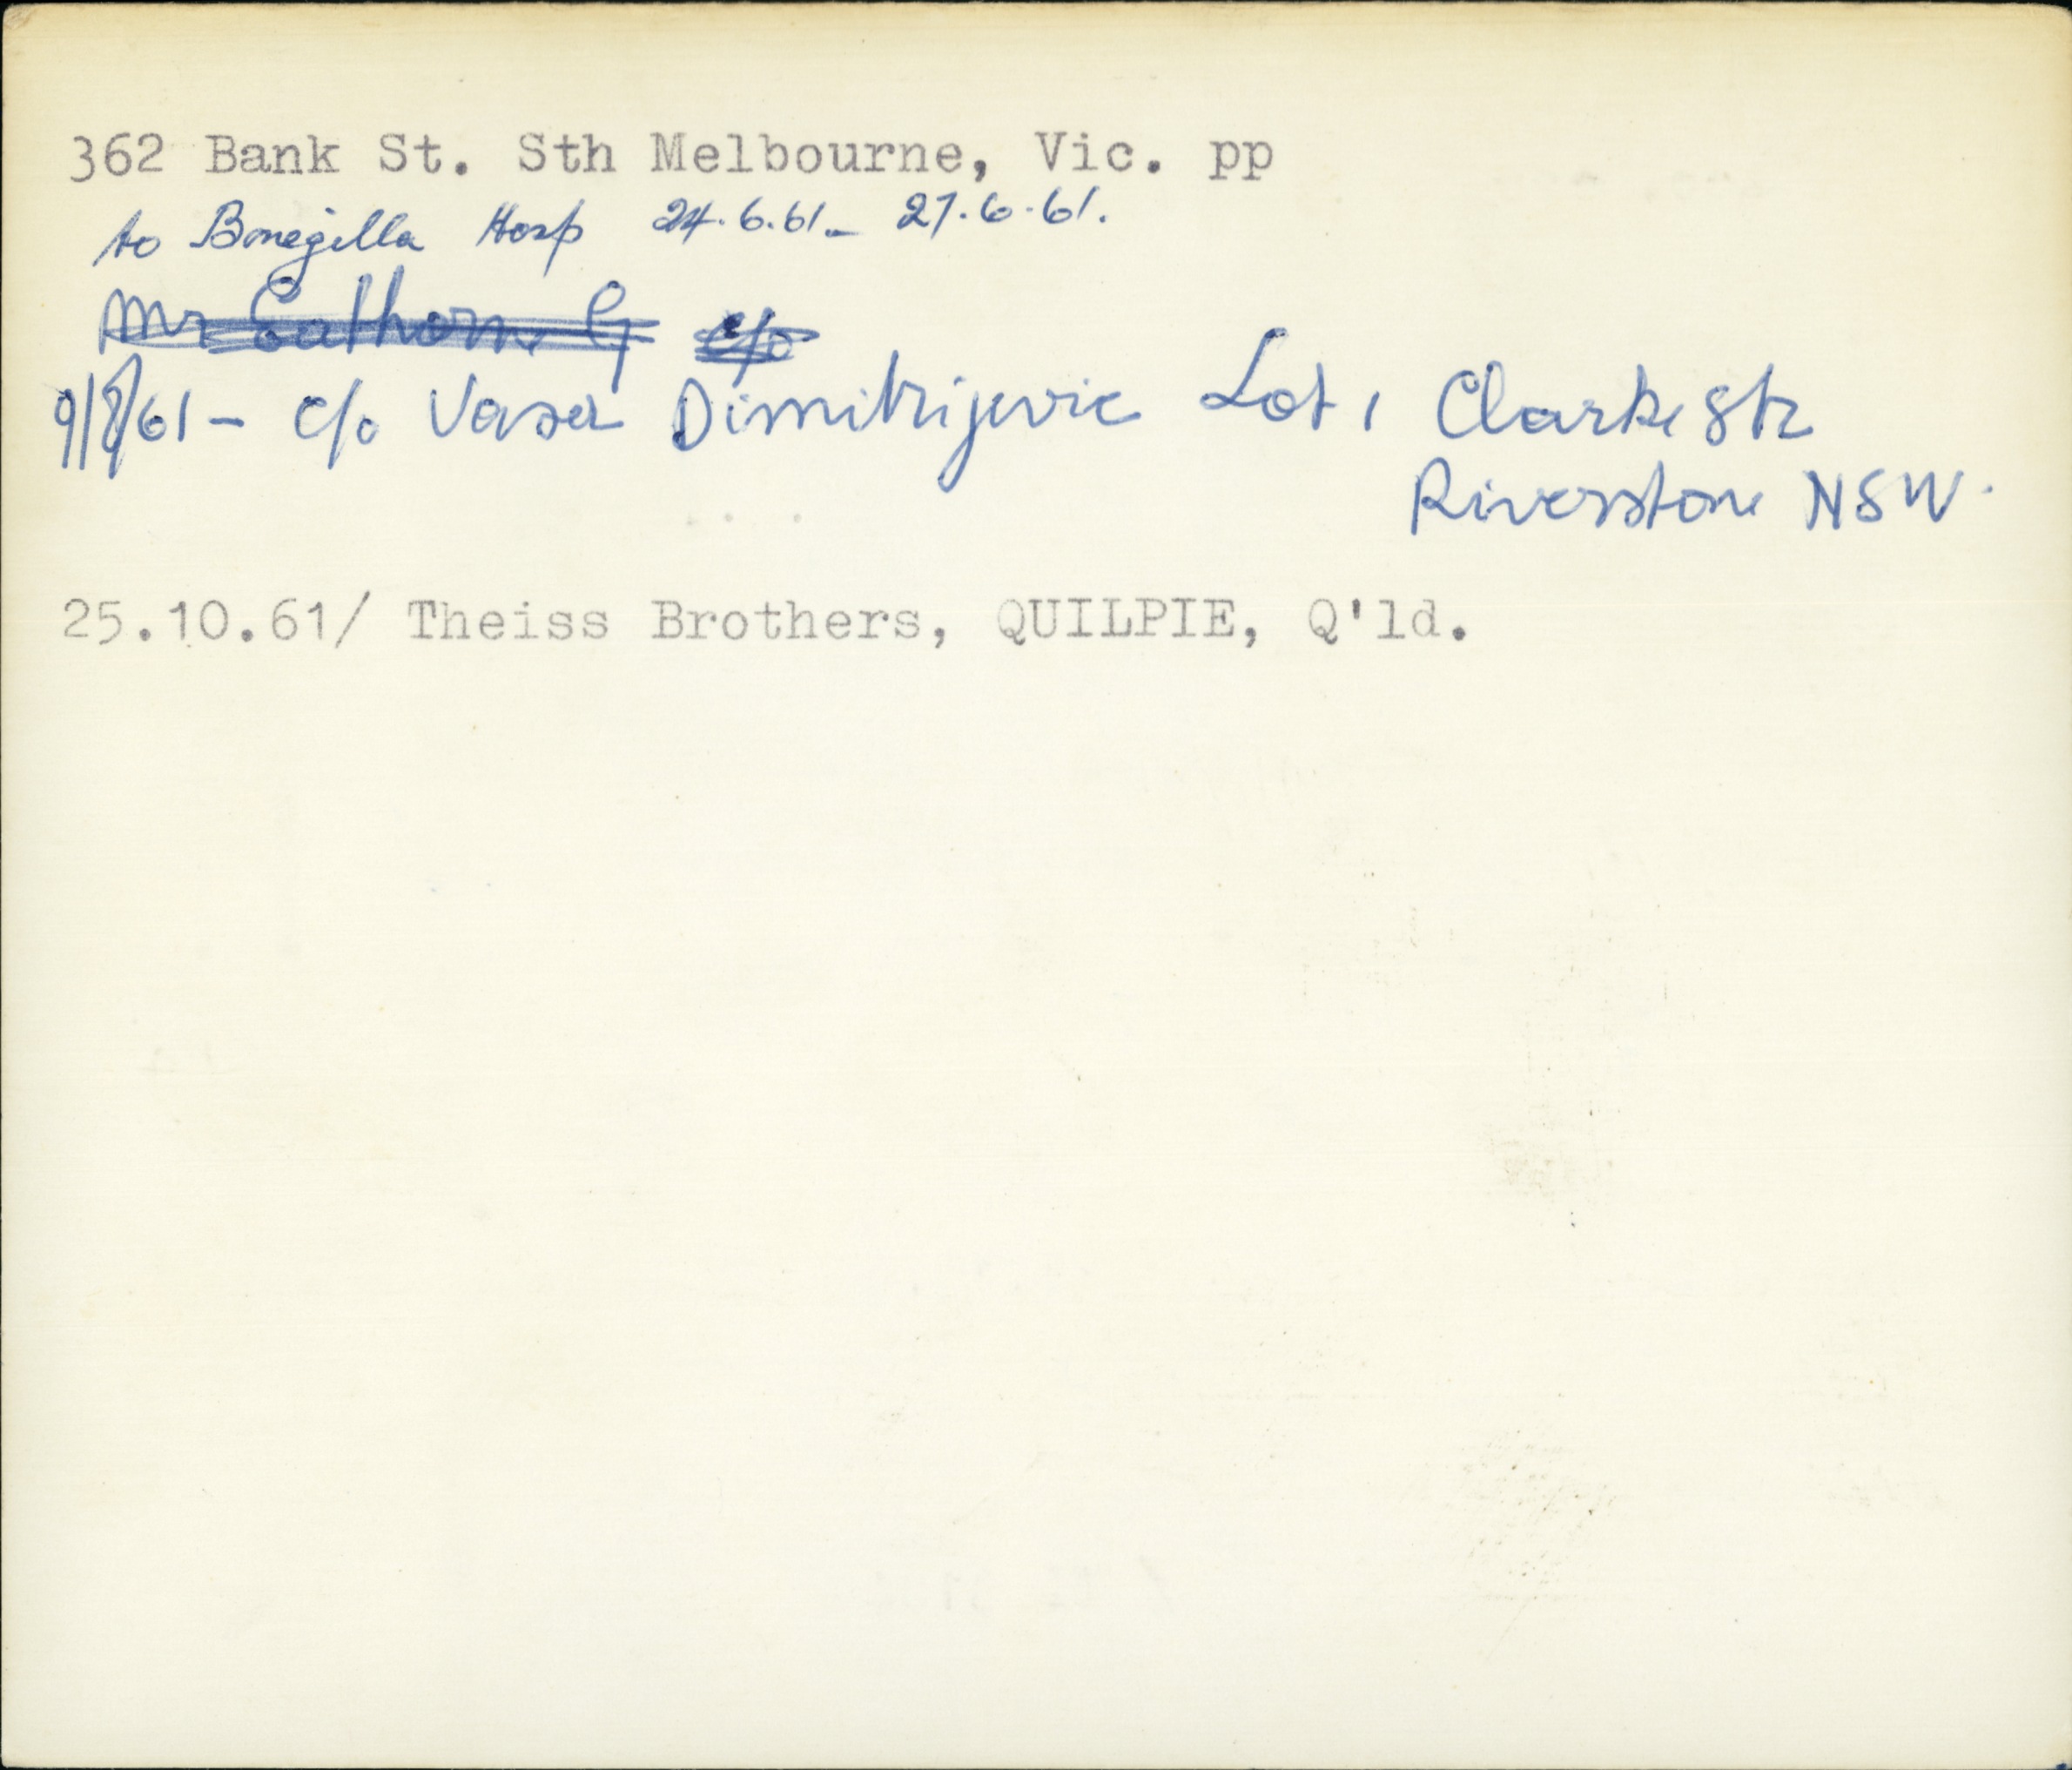 362 Bank St. Sth Melbourne, Vic. pp
to Bonegilla Hosp 24.6.61 - 27.6.61.
Mr Eathorne G c/o
9/8/61 - c/o Vasa Dimitrijevic Lot 1 Clarke Str
Riverstone NSW.
25.10.61/ Theiss Brothers, QUILPIE, Q'ld.